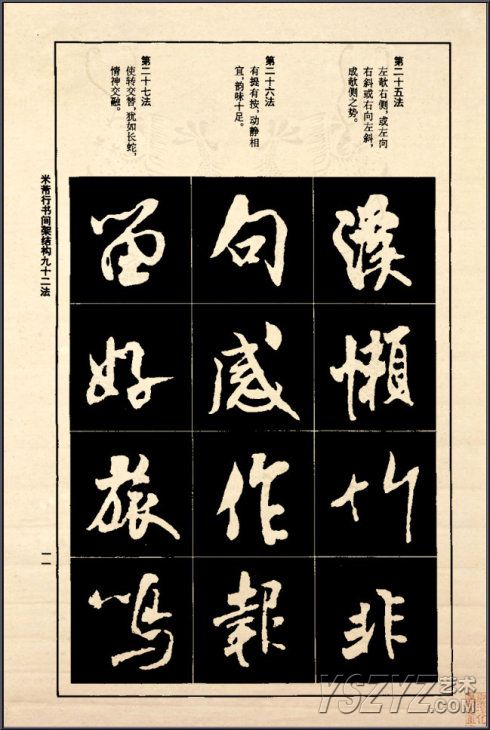 第二十五法
左欹右侧，或左向
右斜或右向左斜，
成欹侧之势。
第二十六法
有提有按，动静相
宜，韵味十足。
第二十七法
使转交替，犹如长蛇，
情神交融。
懒
竹
非
句
感
作
報
留
好
旅
鸣
米芾行书间架结构九十二法
一一
YSZYZ艺术
.COM